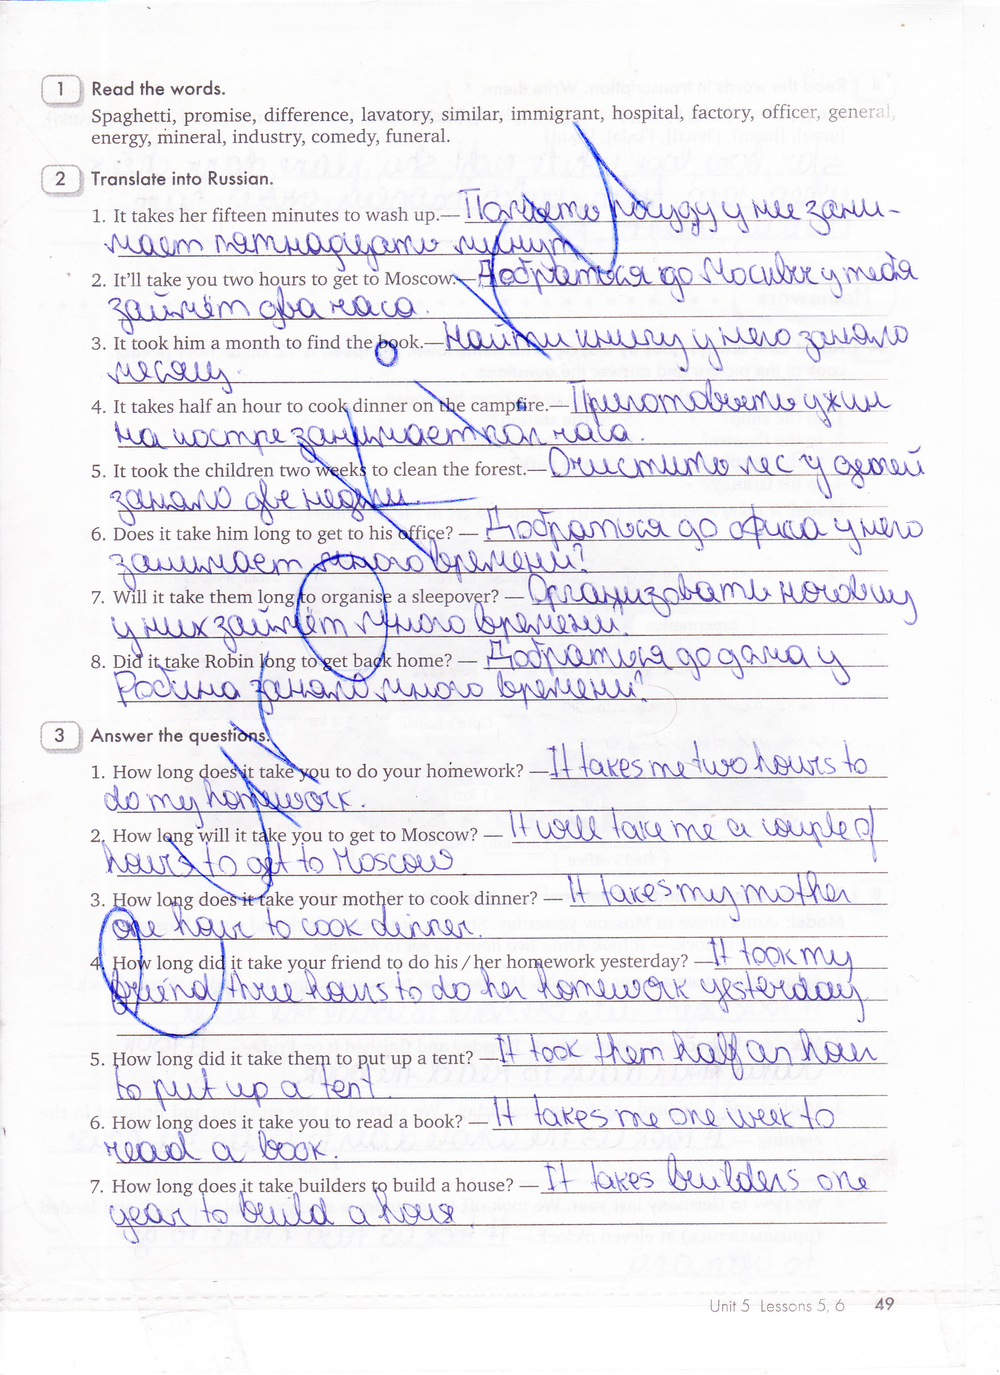 1 Read the words.
Spaghetti, promise, difference, lavatory, similar, immigrant, hospital, factory, officer, general,
energy, mineral, industry, comedy, funeral.
2 Translate into Russian.
1. It takes her fifteen minutes to wash up.— Помыть посуду у нее зани-
мает пятнадцать минут
2. It'll take you two hours to get to Moscow.— Добраться до Москвы у тебя
займёт два часа.
3. It took him a month to find the book.— Найти книгу у него заняло
месяц.
4. It takes half an hour to cook dinner on the campfire.— Приготовить ужин
на костре занимает пол часа.
5. It took the children two weeks to clean the forest.— Очистить лес у детей
заняло две недели.
6. Does it take him long to get to his office? — Добраться до офиса у него
занимает много времени?
7. Will it take them long to organise a sleepover? — Организовать ночовку
у них займёт много времени.
8. Did it take Robin long to get back home? — Добраться до дома у
Робина заняло много времени?
3 Answer the questions.
1. How long does it take you to do your homework? — It takes me two hours to
do my homework.
2. How long will it take you to get to Moscow? — It will take me a couple of
hours to get to Moscow
3. How long does it take your mother to cook dinner? — It takes my mother
one hour to cook dinner.
4. How long did it take your friend to do his / her homework yesterday? — It took my
friend three hours to do her homework yesterday
5. How long did it take them to put up a tent? — It took them half an hour
to put up a tent.
6. How long does it take you to read a book? — It takes me one week to
read a book.
7. How long does it take builders to build a house? — It takes builders one
year to build a house.
Unit 5 Lessons 5, 6 49